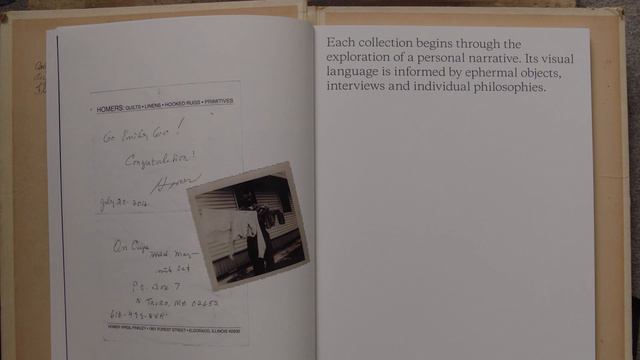 HOMERS: QUILTS • LINENS • HOOKED RUGS • PRIMITIVES
Go Emily Go!
Congratulation!
Homer
July 20-
On Cape
P.O. Box 7
N Truro, MA 02652
618-
Each collection begins through the
exploration of a personal narrative. Its visual
language is informed by ephermal objects,
interviews and individual philosophies.